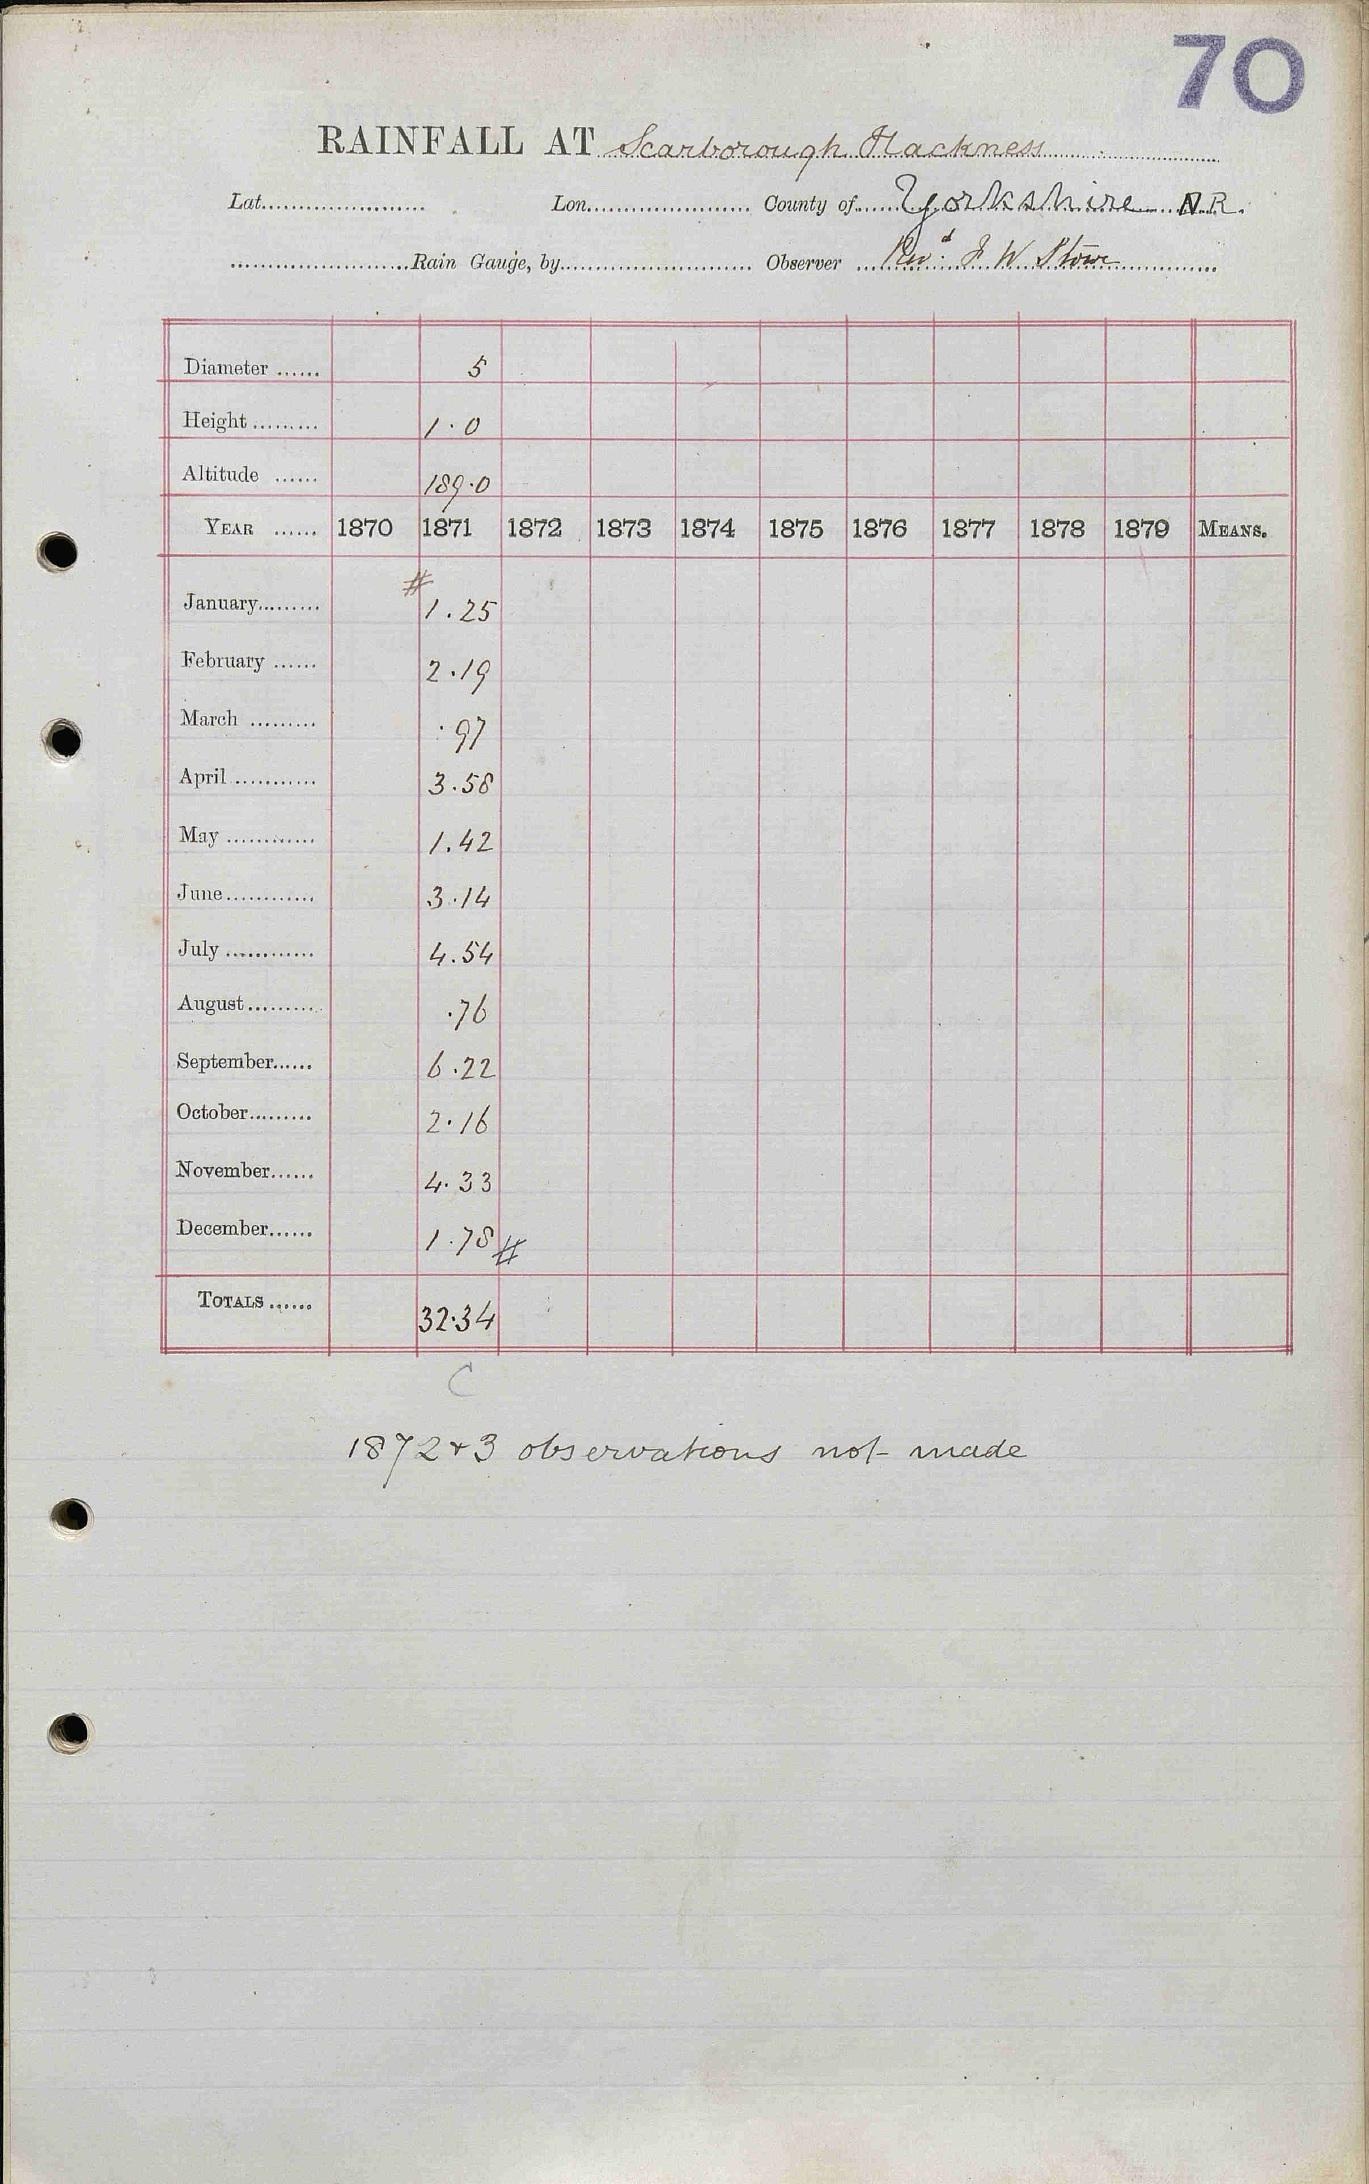 70
RAINFALL AT Scarborough Hackness
Lat...................... Lon...................... County of Yorkshire N.R.
Rain Gauge, by...................... Observer Revd. J W Stowe
Diameter ...... 5
Height ......... 1.0
Altitude ...... 189.0
YEAR ...... 1870 1871 1872 1873 1874 1875 1876 1877 1878 1879 MEANS.
#
January......... 1.25
February ...... 2.19
March ......... .97
April ........... 3.58
May ............ 1.42
June............ 3.14
July ............ 4.54
August.......... .76
September...... 6.22
October......... 2.16
November...... 4.33
December...... 1.78 #
TOTALS ...... 32.34
C
1872 + 3 observations not made